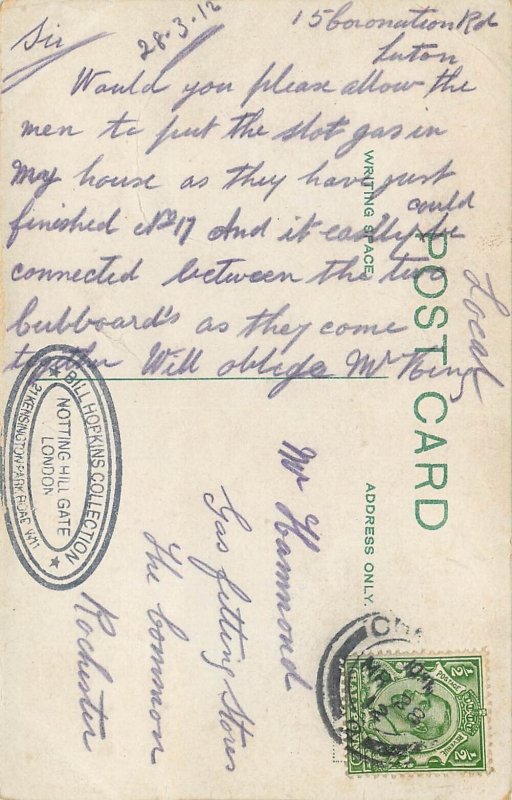 15 Coronation Rd
Luton
28.3.12
Sir
Would you please allow the
men to put the slot gas in
my house as they have just
finished No 17 And it could easily be
connected between the two
cubboard's as they come
together Will oblige Mr King
Local
POST CARD
WRITING SPACE.
ADDRESS ONLY.
Mr Hammond
Gas fitting Stores
The Common
Rochester
BILL HOPKINS COLLECTION
NOTTING HILL GATE
LONDON
KENSINGTON PARK ROAD W11
MR 28
12
POSTAGE
REVENUE
1/2
1/2